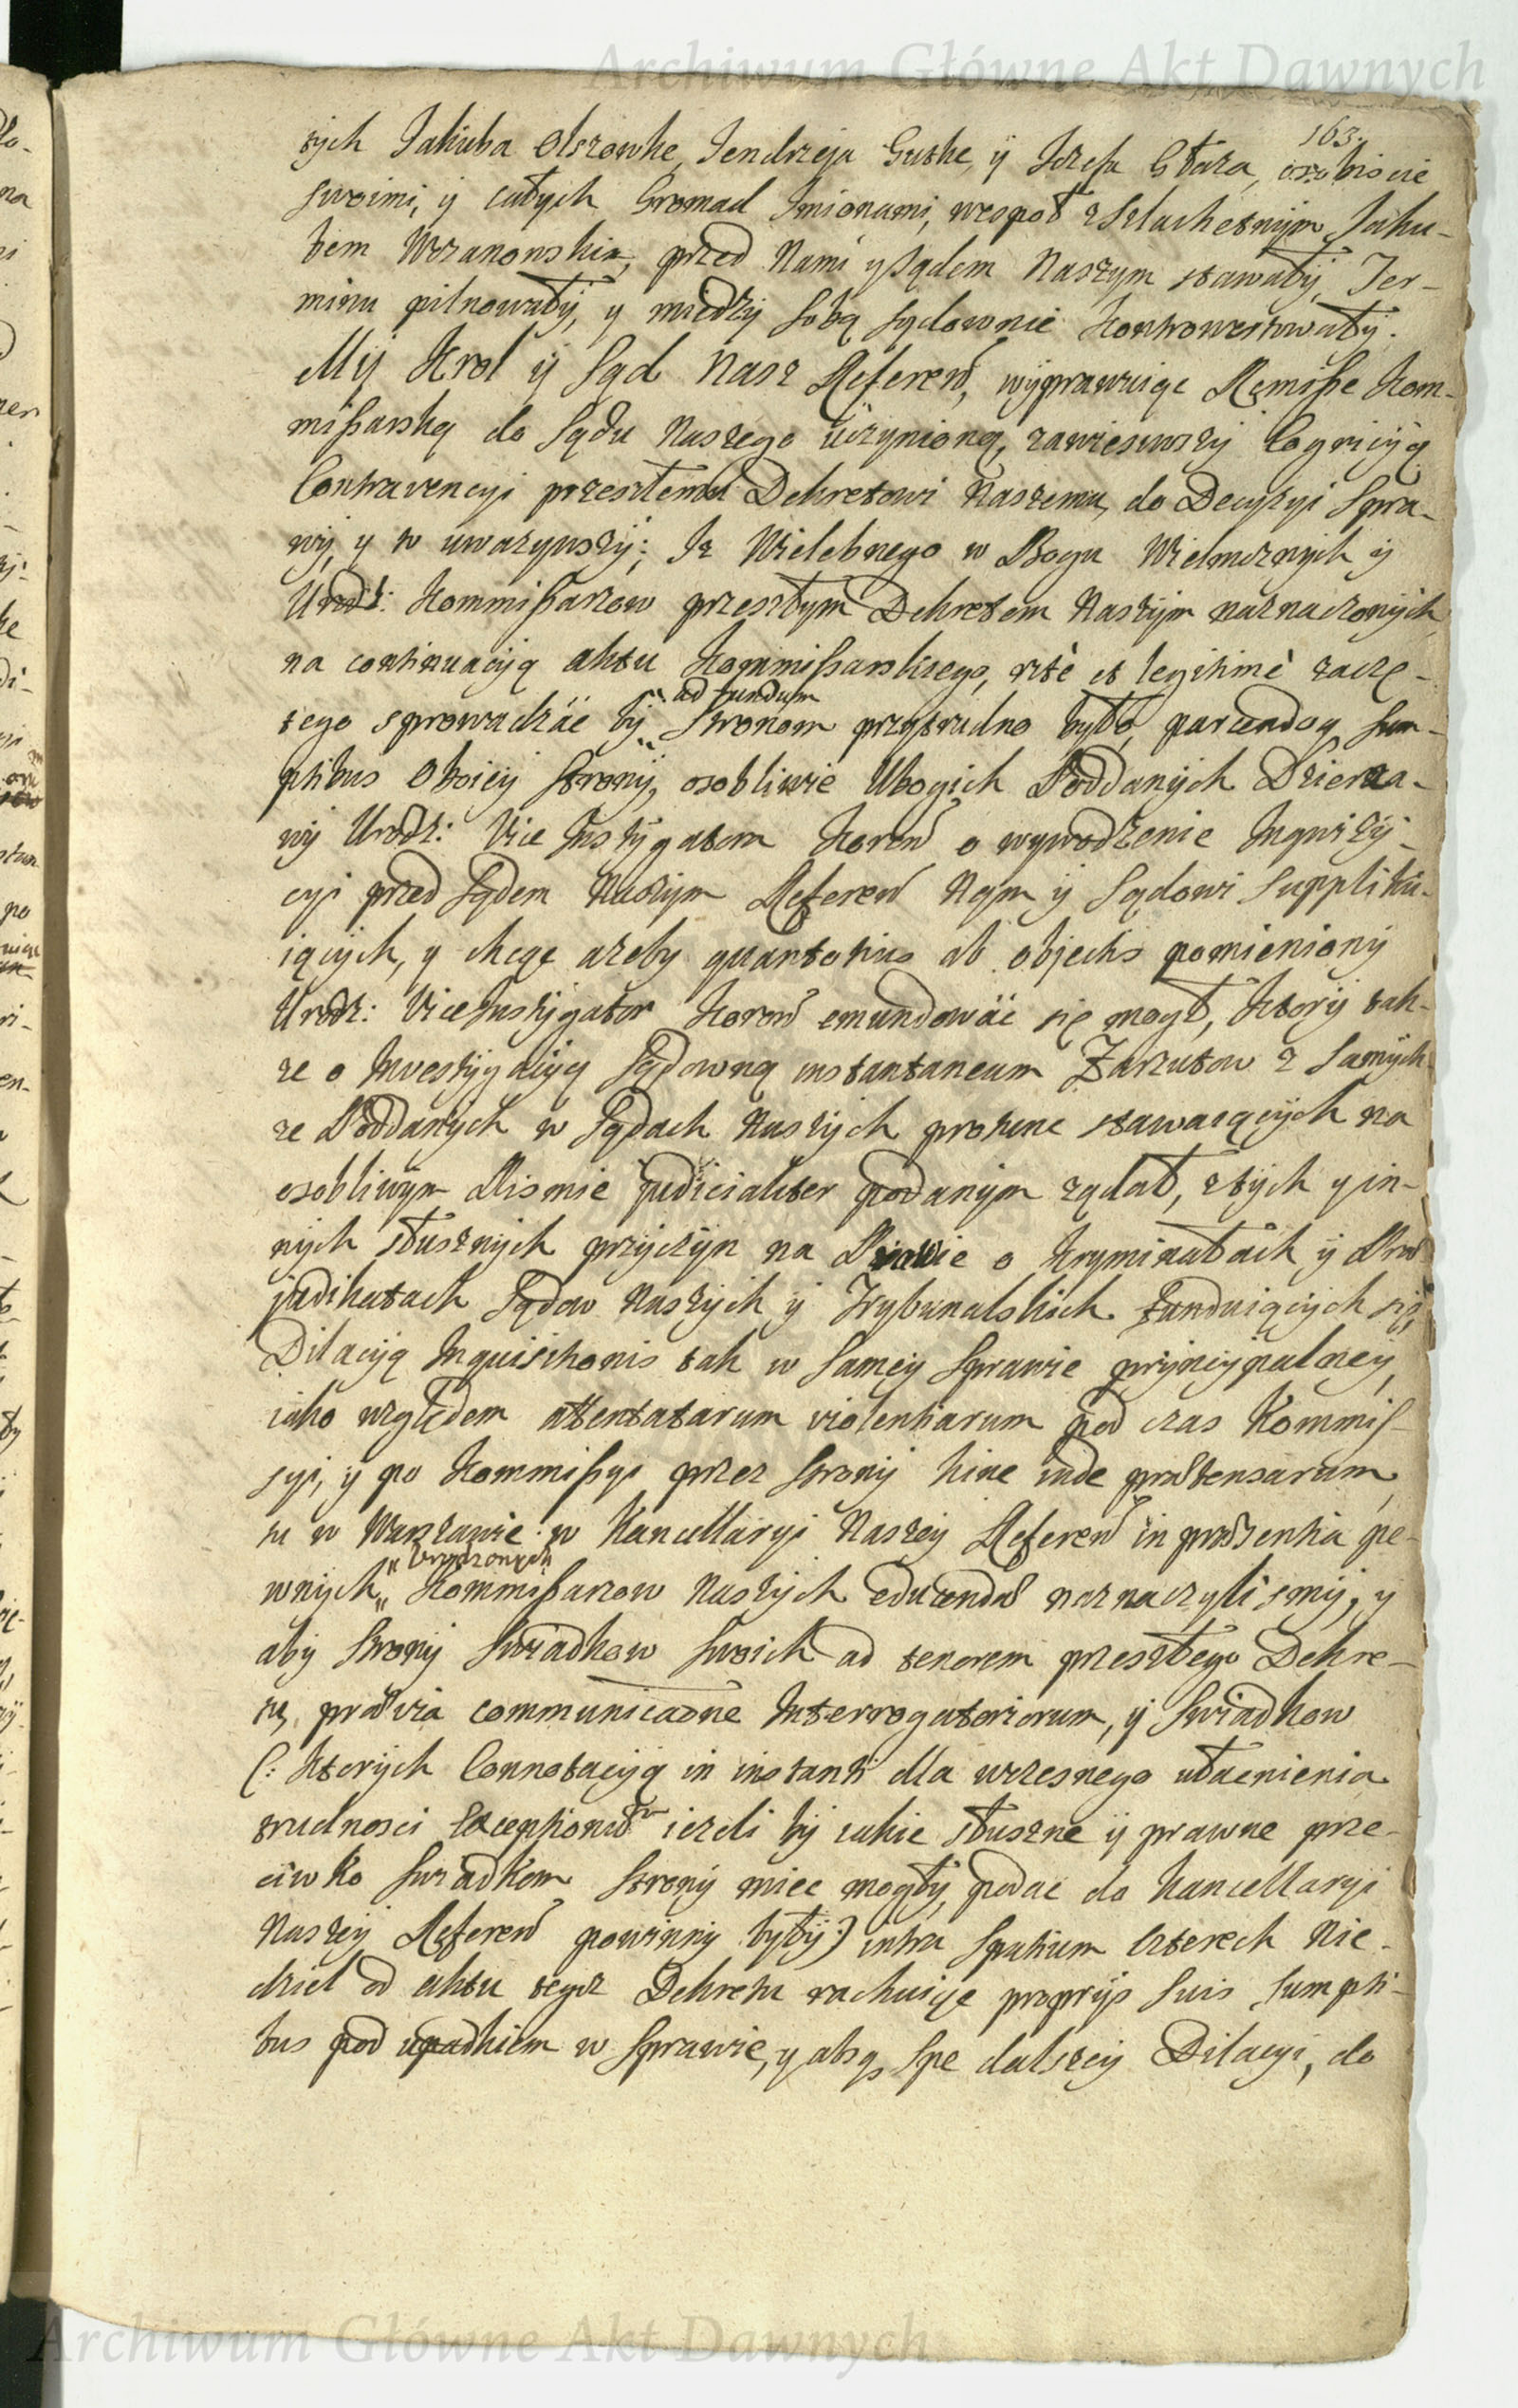 Archiwum Główne Akt Dawnych
163.
tych Jakuba Olszowke, Jendrzeja Gutke, ÿ Jozefa Gbara, osobiscie
swoimi, ÿ całych Gromad Jmionami, wespoł z Szlachetnÿm Jaku-
bem Wrzanowskim, przed Nami y Sądem Naszym stawałÿ, Ter-
minu pilnowałÿ, y miedzÿ sobą sądownie kontrowertowałÿ.
Mÿ Krol ÿ Sąd Nasz Referen̄, wÿprawuiąc Remiße Kom-
mißarską do Sądu Naszego uczynioną, zawiesiwszÿ Cognicÿą
Contravencyi przeszłemu Dekretowi Naszemu, do Decyzyi Spra-
wÿ, y to uwazywszÿ; Iz Wielebnego w Bogu Wielmoznÿch ÿ
Urodz: Kommißarzow przeszłym Dekretem Naszÿm naznaczonÿch
na continuacÿą aktu Kommißarskiego, ritè et legitimè zaczę-
ad fundum
tego sprowadzác bÿ Stronom przÿtrudno było, parcendoq sum-
ptibus Oboiey Stronÿ, osobliwie Ubogich Poddanÿch Dzierza-
wÿ Urodz: Vice Instÿgatora Koron̄ o wywodzenie Inqwizÿ-
cyi przed Sądem Naszym Referen̄ Nam ÿ Sądowi Suppliku-
iącÿch, y chcąc azeby quantotius ab objectis pomienionÿ
Urodz: ViceInstÿgator Koron̄ emundowác się mogł, ktorÿ tak-
ze o Investÿgacÿą Sądowną instantaneam Zarzutow z Samÿch-
ze Poddanÿch w Sądach Naszÿch prozno stawaiącÿch na
osobliwÿm Pismie judicialiter podanÿm ządał, z tÿch y in-
nÿch słusznÿch przÿczÿn na Prawie o Kryminałach ÿ Prae
judikatach Sądow Naszÿch ÿ Trybunalskich funduiącÿch się,
Dilacÿą Inquisitionis tak w Samey Sprawie prÿncypalney,
iako względem attentatarum violentiarum pod czas Kommis-
syi, ÿ po Kommißyi przez Stronÿ hinc inde praetensarum,
tu w Warszawie w Kancellaryi Naszey Referen̄ in praesentia pe-
Urodzonych
wnÿch Kommißarzow Naszÿch educendas naznaczylismÿ, y
abÿ Stronÿ Swiadkow Swoich ad tenorem przeszłego Dekre-
tu, praevia communicatione Interrogatoriorum, ÿ Swiadkow
(: ktorÿch Connotacÿą in instanti dla wczesnego ułacnienia
trudnosci Exceptionum iezeli bÿ iakie słuszne ÿ prawne prze-
ciwko Swiadkom Stronÿ miec mogłÿ, podac do Kancellaryi
Naszey Referen̄ powinnÿ bÿłÿ:) intra Spatium Czterech Nie-
dziel od aktu tegoz Dekretu rachuiąc proprÿs Suis Sumpti-
bus pod upadkiem w Sprawie, y absq Spe dalszey Dilacyi, do
Archiwum Główne Akt Dawnych